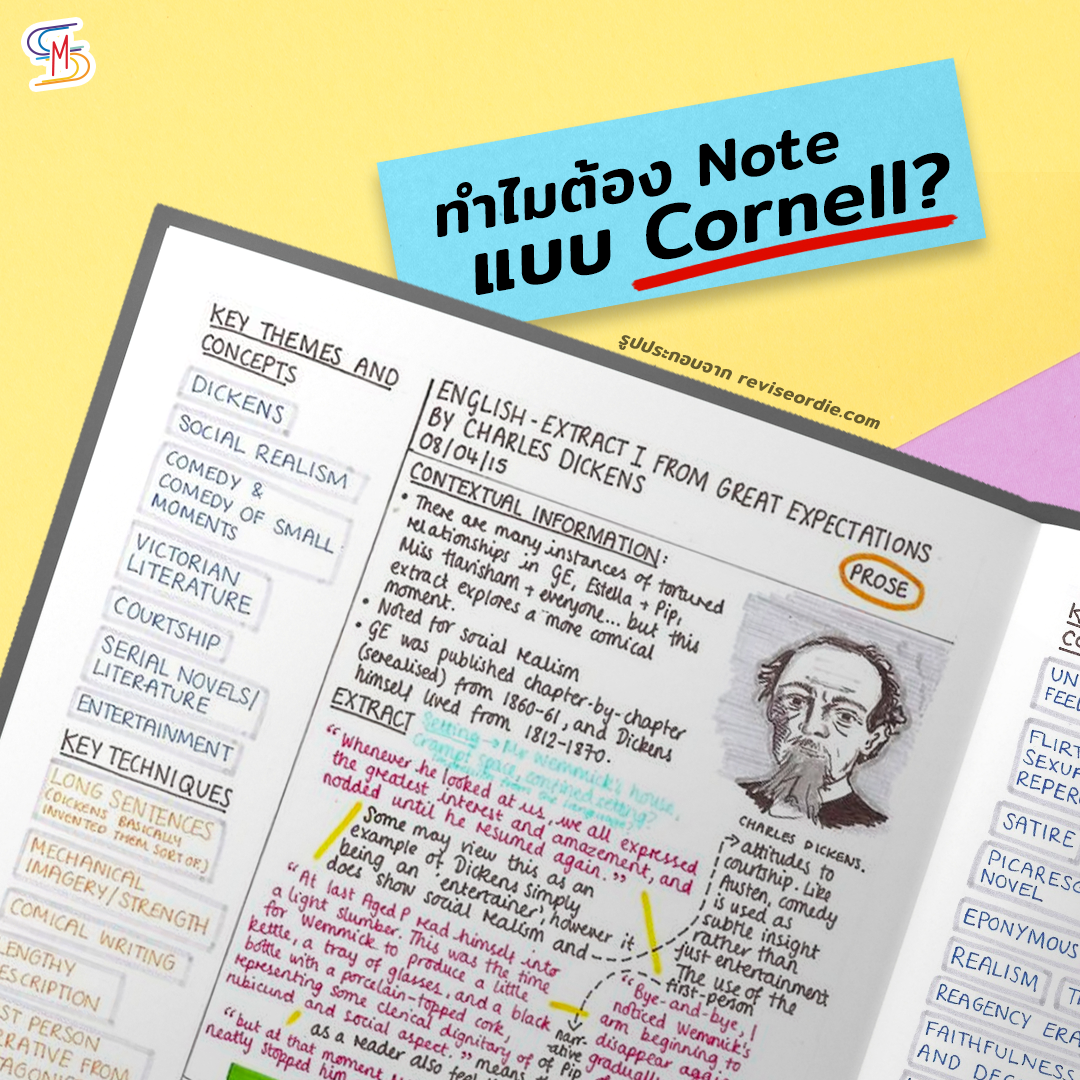 SMS
ทำไมต้อง Note
แบบ Cornell?
รูปประกอบจาก reviseordie.com
KEY THEMES AND
CONCEPTS
DICKENS
SOCIAL REALISM
COMEDY &
COMEDY OF SMALL
MOMENTS
VICTORIAN
LITERATURE
COURTSHIP
SERIAL NOVELS/
LITERATURE
ENTERTAINMENT
KEY TECHNIQUES
LONG SENTENCES
(DICKENS BASICALLY
INVENTED THEM, SORT OF)
MECHANICAL
IMAGERY/STRENGTH
COMICAL WRITING
LENGTHY
ESCRIPTION
ST PERSON
RATIVE FROM
TAGONIS
ENGLISH - EXTRACT I FROM GREAT EXPECTATIONS
BY CHARLES DICKENS
08/04/15
PROSE
CONTEXTUAL INFORMATION:
• There are many instances of tortured
relationships in GE, Estella + Pip,
Miss Havisham + everyone... but this
extract explores a more comical
moment.
• Noted for social realism
• GE was published chapter-by-chapter
(serealised) from 1860-61, and Dickens
himself lived from 1812-1870.
EXTRACT
Setting → Mr Wemmick's house,
Crampt space, confined setting?
"Whenever he looked at us, we all expressed
the greatest interest and amazement, and
nodded until he resumed again."
Some may view this as an
example of Dickens simply
being an 'entertainer', however it
does show social realism and
CHARLES DICKENS.
attitudes to
courtship. Like
Austen, comedy
is used as
subtle insight
rather than
just entertainment
The use of the
first-person
narr-
ative
of Pip
means the
"At last Aged P read himself into
a light slumber. This was the time
for Wemmick to produce a little
kettle, a tray of glasses, and a black
bottle with a porcelain-topped cork,
representing some clerical dignitary of
rubicund and social aspect."
as a reader also feel
"but at that moment
neatly stopped him
"Bye-and-bye, I
noticed Wemmick's
arm beginning to
disappear again
gradually
K
CO
UN
FEEL
FLIRT
SEXUA
REPER
SATIRE
PICARESC
NOVEL
EPONYMOUS
REALISM
T
REAGENCY ERA
FAITHFULNESS
AND DEC